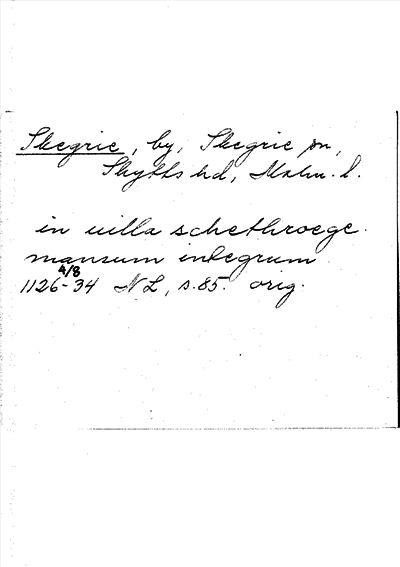 Skegrie, by, Skegrie sn,
Skytts hd, Malm. l.
in uilla schethroege.
mansum integrum
4/8
1126-34 NL, s.85. orig.